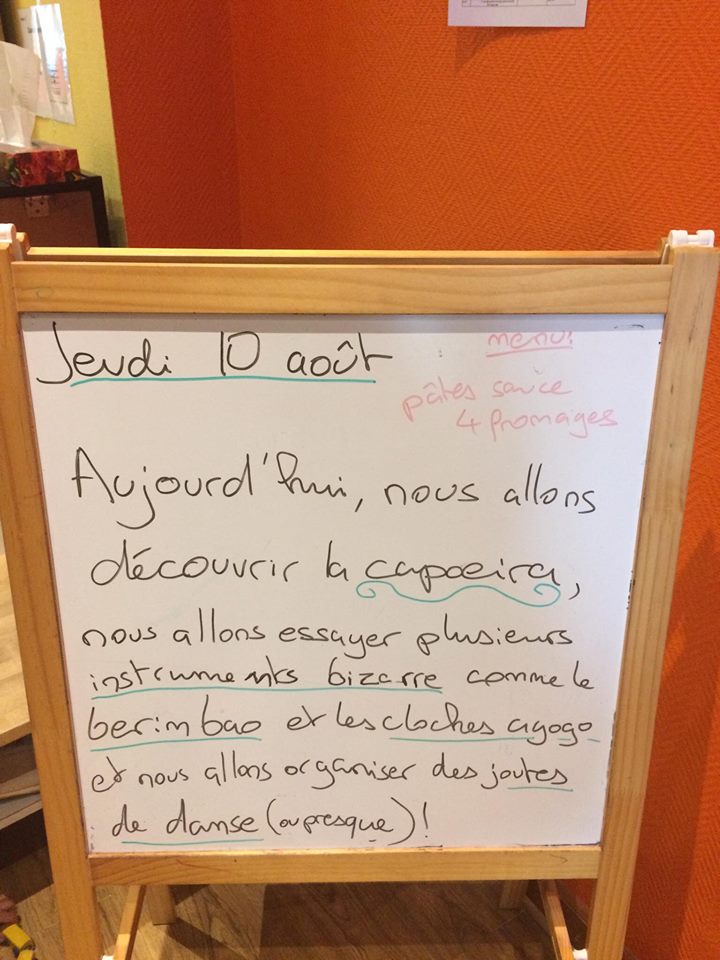 Jeudi 10 août
menu:
pâtes sauce
4 fromages
Aujourd'hui, nous allons
découvrir la capoeira,
nous allons essayer plusieurs
instruments bizarre comme le
berimbao et les cloches agogo
et nous allons organiser des joutes
de danse (ou presque) !